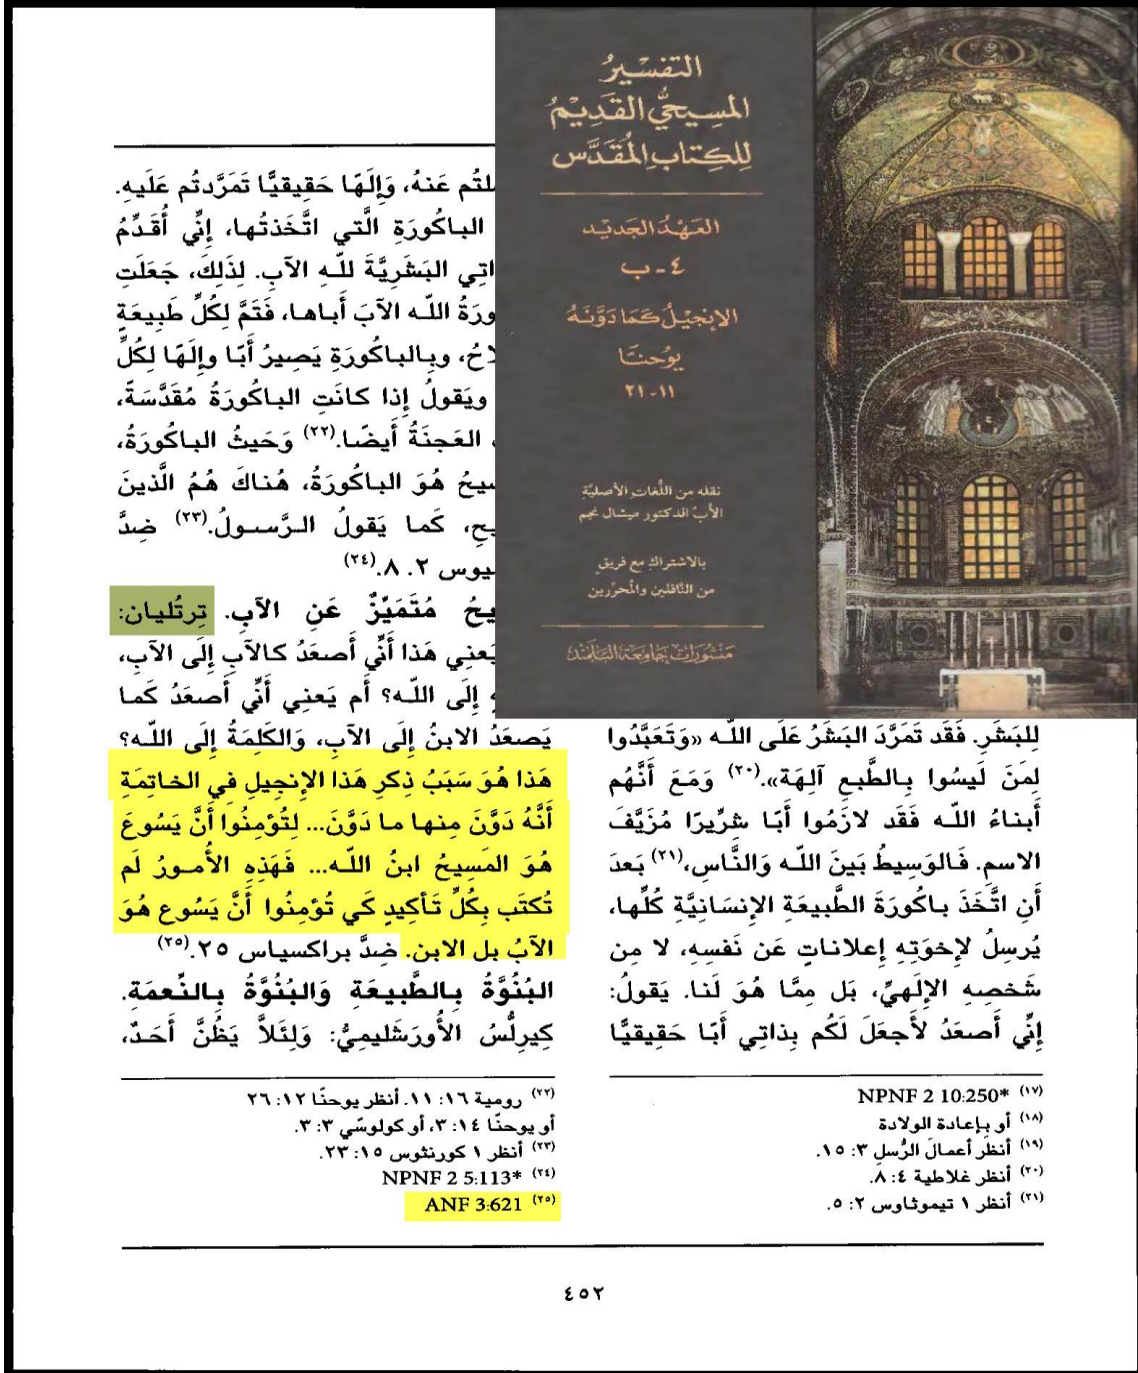 التفسيرُ
المسِيحيُّ القَدِيمُ
لِلكِتابِ المُقَدَّس
العَهْدُ الجَديد
٤ - ب
الإنجيْلُ كَمَا دَوَّنَهُ
يوُحنَّا
١١-٢١
نقله من اللُّغات الأصليَّة
الأبُ الدكتور ميشال نجم
بالاشتراك مع فريقٍ
من النَّاقلين والمُحرّرين
مَنْشُورَات جَامِعَة البَلَمَنْد
لِلبَشَرِ. فَقَد تَمَرَّدَ البَشَرُ عَلَى اللّه «وَتَعَبَّدُوا
لِمَنَ لَيسُوا بِالطَّبعِ آلِهَة».(٢٠) وَمَعَ أَنَّهُم
أَبناءُ اللّه فَقَد لازَمُوا أَبًا شرِّيرًا مُزَيَّفَ
الاسمِ. فَالوَسِيطُ بَينَ اللّه وَالنَّاسِ،(٢١) بَعدَ
أَنِ اتَّخَذَ بـاكُورَةَ الطَّبيعَةِ الإنسَانِيَّة كُلِّها،
يُرسِلُ لإخوَتِهِ إعلاناتٍ عَن نَفسِهِ، لا مِن
شَخصِهِ الإلَهيِّ، بَل مِمَّا هُوَ لَنا. يَقولُ:
إنِّي أَصعَدُ لأَجعَلَ لَكُم بِذاتي أَبًا حَقيقيًّا
(١٧) NPNF 2 10:250*
(١٨) أو بإعادة الولادة
(١٩) أنظر أعمالَ الرُّسلِ ٣: ١٥.
(٢٠) أنظر غلاطية ٤: ٨.
(٢١) أنظر ١ تيموثاوس ٢: ٥.
لتُم عَنهُ، وَإلَهًا حَقيقيًّا تَمَرَّدتُم عَلَيهِ.
الباكُورَةِ الَّتي اتَّخَذتُها، إنِّي أُقَدِّمُ
اتِي البَشَرِيَّةَ للّهِ الآبِ. لِذَلِكَ، جَعَلَتِ
ورَةُ اللّه الآبَ أَباها، فَتَمَّ لِكُلِّ طَبيعَةٍ
لاحُ، وبِالباكُورَةِ يَصِيرُ أَبًا وإلَهًا لِكُلِّ
ويَقولُ إذا كانَتِ الباكُورَةُ مُقَدَّسَةً،
العَجنَةُ أَيضًا.(٢٢) وَحَيثُ الباكُورَةُ،
سيحُ هُوَ الباكُورَةُ، هُناكَ هُمُ الَّذينَ
يحِ، كَما يَقولُ الرَّسولُ.(٢٣) ضِدَّ
يوس ٢. ٨.(٢٤)
يحُ مُتَمَيِّزٌ عَنِ الآبِ. تِرتُليان:
يَعنِي هَذا أَنِّي أَصعَدُ كالآبِ إلَى الآبِ،
إلَى اللّه؟ أَم يَعنِي أَنِّي أَصعَدُ كَما
يَصعَدُ الابنُ إلَى الآبِ، وَالكَلِمَةُ إلَى اللّه؟
هَذا هُوَ سَبَبُ ذِكرِ هَذا الإنجيلِ في الخاتِمَةِ
أَنَّهُ دَوَّنَ مِنها ما دَوَّنَ... لِتُؤمِنُوا أَنَّ يَسُوعَ
هُوَ المَسِيحُ ابنُ اللّه... فَهَذِهِ الأُمورُ لَم
تُكتَب بِكُلِّ تَأكِيدٍ كَي تُؤمِنُوا أَنَّ يَسُوع هُوَ
الآبُ بل الابن. ضِدَّ براكسياس ٢٥.(٢٥)
البُنُوَّةُ بِالطَّبيعَةِ وَالبُنُوَّةُ بِالنِّعمَةِ.
كِيرِلُّسُ الأُورَشَليمِيُّ: وَلِئَلاَّ يَظُنَّ أَحَدٌ،
(٢٢) رومية ١٦: ١١. أنظر يوحنّا ١٢: ٢٦
أو يوحنّا ١٤: ٣، أو كولوسّي ٣: ٣.
(٢٣) أنظر ١ كورنثوس ١٥: ٢٣.
(٢٤) NPNF 2 5:113*
(٢٥) ANF 3:621
٤٥٢